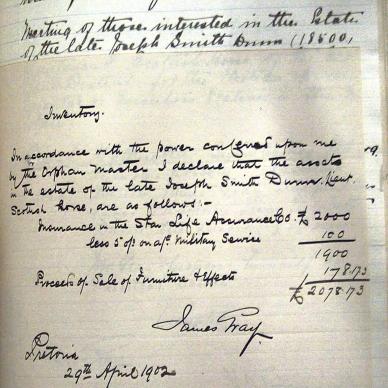 Meeting of those interested in the Estate
of the late Joseph Smith Dunn (18500)
Inventory.
In accordance with the power conferred upon me
by the Orphan Master I declare that the assets
in the estate of the late Joseph Smith Dunn, Lieut.
Scottish Horse, are as follows:-
Insurance in the Star Life Assurance Co. £ 2000
less 5% on a/c Military Service 100
1900
Proceeds of Sale of Furniture & Effects 178.17.3
£ 2078.17.3
James Gray.
Pretoria
29th April 1902